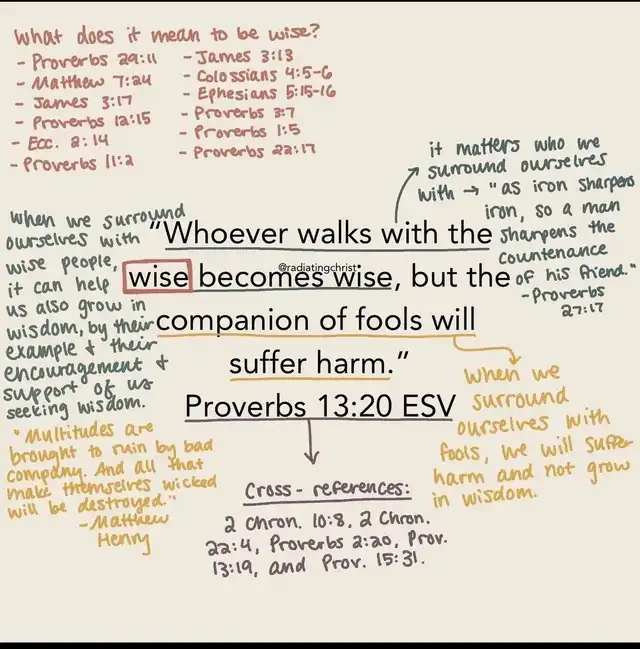 What does it mean to be wise?
- Proverbs 29:11
- Matthew 7:24
- James 3:17
- Proverbs 12:15
- Ecc. 2:14
- Proverbs 11:2
- James 3:13
- Colossians 4:5-6
- Ephesians 5:15-16
- Proverbs 3:7
- Proverbs 1:5
- Proverbs 22:17
it matters who we
surround ourselves
with → "as iron sharpens
iron, so a man
sharpens the
countenance
of his friend."
- Proverbs
27:17
When we surround
ourselves with
wise people,
it can help
us also grow in
wisdom, by their
example & their
encouragement &
support of us
seeking wisdom.
"Whoever walks with the
@radiatingchrist
wise becomes wise, but the
companion of fools will
suffer harm."
Proverbs 13:20 ESV
"Multitudes are
brought to ruin by bad
company. And all that
make themselves wicked
will be destroyed."
- Matthew
Henry
When we
surround
ourselves with
fools, we will suffer
harm and not grow
in wisdom.
Cross-references:
2 Chron. 10:8, 2 Chron.
22:4, Proverbs 2:20, Prov.
13:19, and Prov. 15:31.